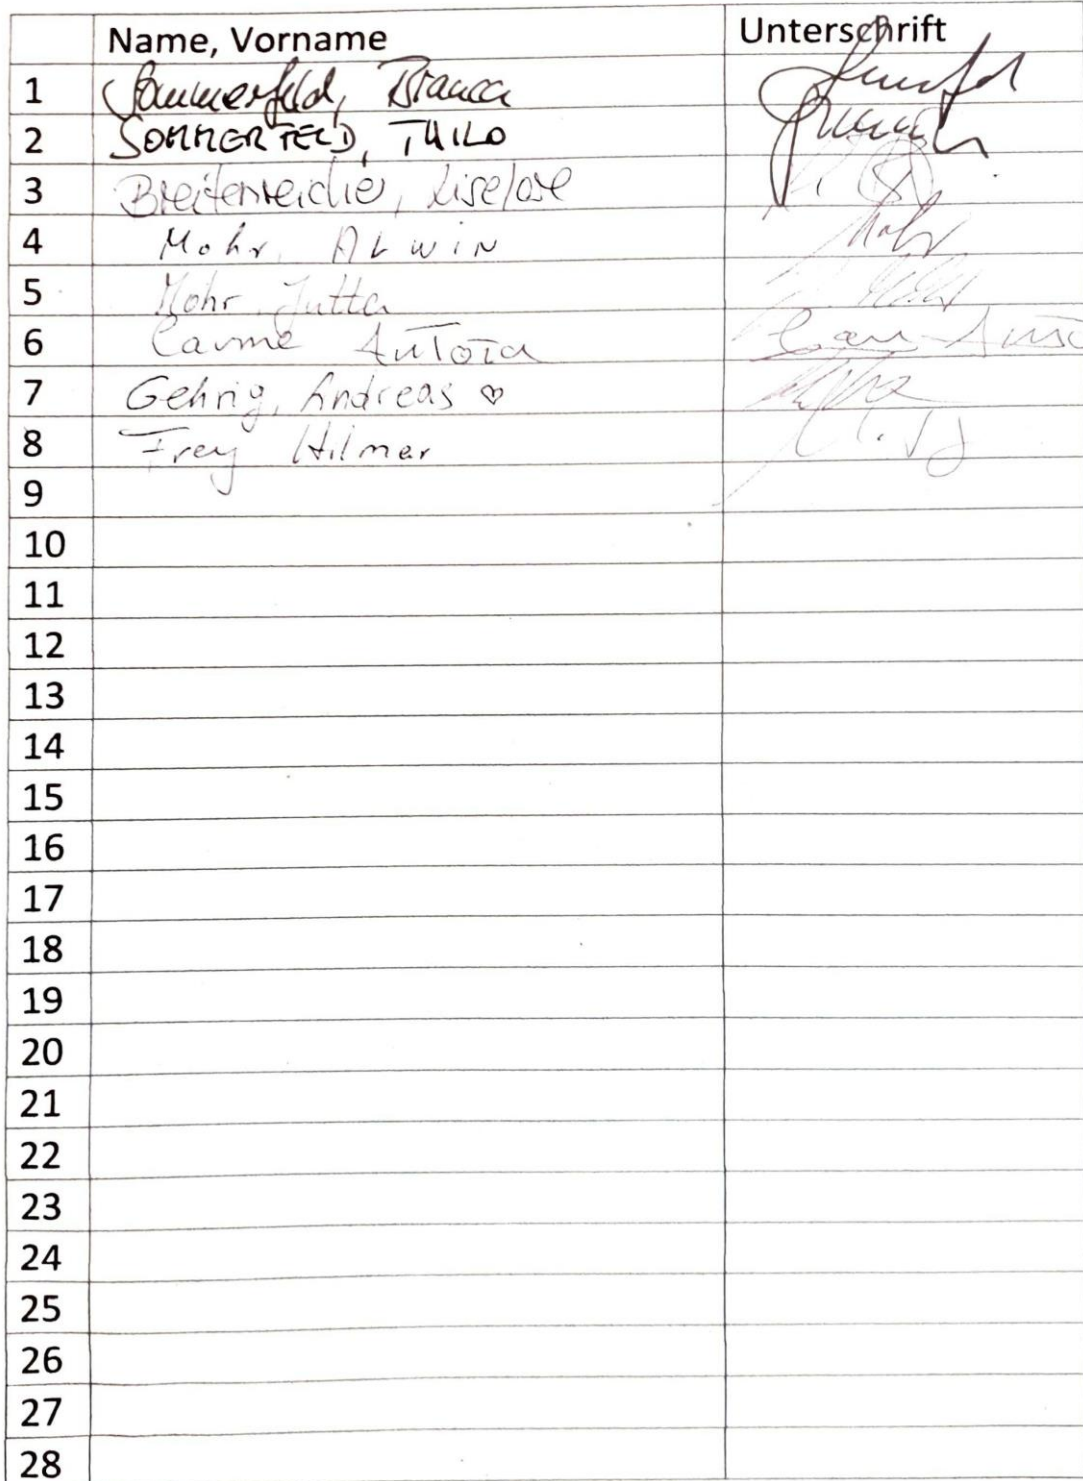 Name, Vorname Unterschrift
1 Sommerfeld, Bianca
2 SOMMERFELD, THILO
3 Breitenreicher, Liselore
4 Mohr, ALWIN Mohr
5 Mohr Jutta
6 Carme
7 Gehrig, Andreas ♡
8 Frey Hilmar
9
10
11
12
13
14
15
16
17
18
19
20
21
22
23
24
25
26
27
28